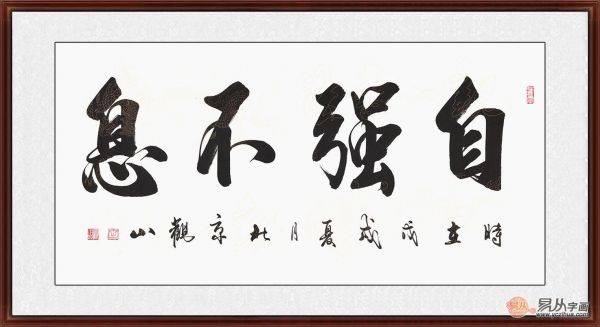 自强不息
時在戊戌夏月北京觀山
易从字画
www.yczihua.com